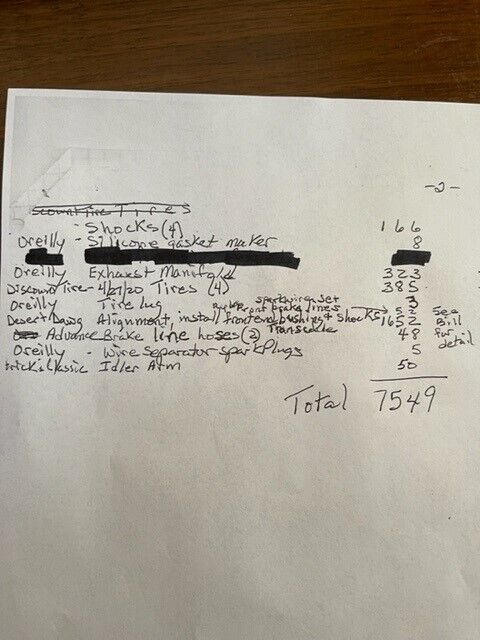 -2-
Tires
- Shocks (4) 166
Oreilly - Silicone gasket maker 8
Oreilly Exhaust Manifold 323
Discount Tire - 4/27/20 Tires (4) 385
Oreilly Tire lug 3
sparkwires set 52
Desert Dawg Alignment, install front end bushing & shocks 1652 See Bill for detail
front brake lines
Advance Brake line hoses (2) 48
Oreilly - Wire Separator spark Plugs 5
Classic Idler Arm 50
Total 7549